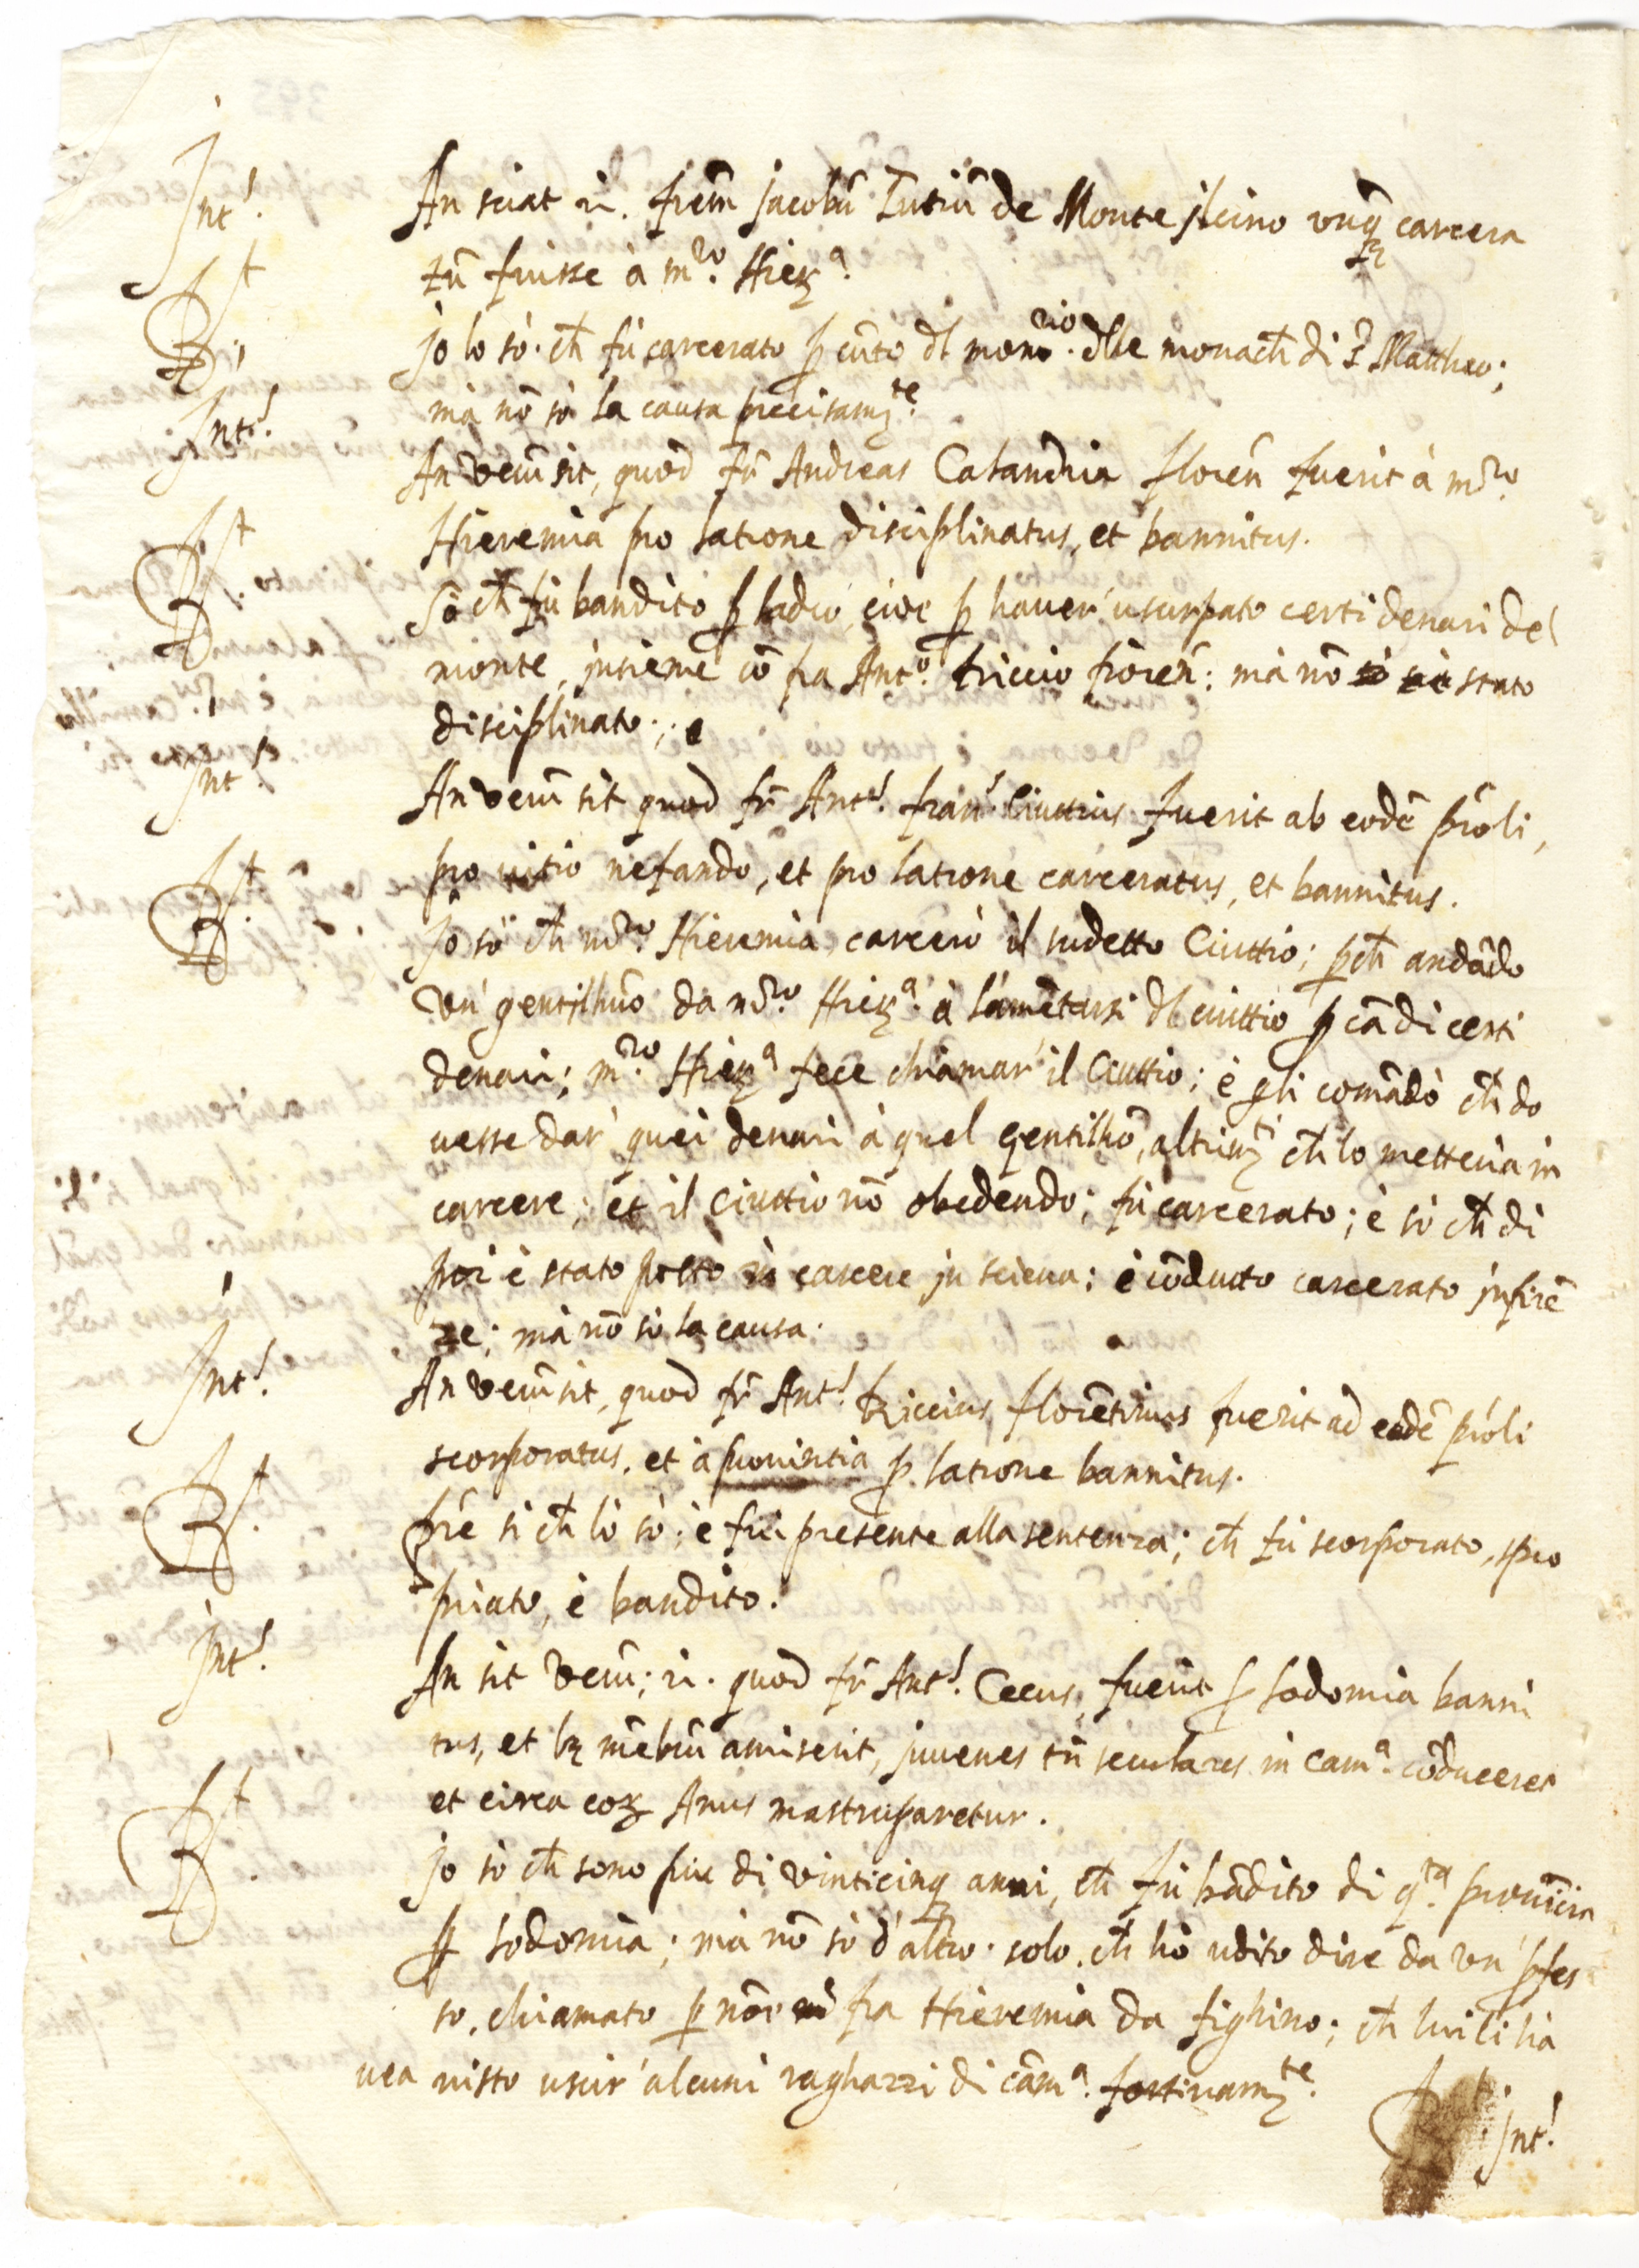 Int.s
An sciat ii. frẽm Jacobũ Tutiũ de Monte ilcino unq̃ carcera
tũ fuisse à m.ro Hier.a
R.t
Jo lo sò. ch̃ fù carcerato p cũto dl mon.rio dlle monach̃ di S. Mattheo;
mà nõ sò la causa precisam.te
Int.s
An veru͂ sit, quod fr̃ Andreas Calandria florẽn fuerit à m.ro
Hieremia pro latrone disciplinatus, et bannitus.
R.t
Sò ch̃ fù bandito p ladro, cioe p haver' usurpato certi denari del
monte, insieme cõ fra Ant.o Riccio fiorẽn: mà nõ stato
disciplinato.
Int.s
An veru͂ sit quod fr̃ Ant.s Ciuttius fuerit ab eodẽ prõli,
pro vitio nefando, et pro latrone carceratus, et bannitus.
R.t
Jo sò ch̃ m.ro Hieremia carcerò il sudetto Ciuttio; pch̃ andãdo
un' gentilhuõ da m.ro Hier.a à lamẽtarsi dl ciuttio p cã di certi
denari; m.ro Hier.a fece chiamar' il Ciuttio; è gli comãdò ch̃ do
vesse dar' quei denari à quel gentilhõ, altrim.ti ch̃ lo metteria in
carcere; et il Ciuttio nõ obedendo; fù carcerato; è sò ch̃ di
poi è stato posto in carcere in siena; è cõdutto carcerato infirẽ
ze; mà nõ sò la causa.
Int.s
An veru͂ sit, quod fr̃ Ant.s Riccius florẽtinus fuerit ad eodẽ prõli
scorporatus, et à provintia p latrone bannitus.
R.t
Pre si ch̃ lò sò; è fui presente alla sentenza; ch̃ fù scorporato, spro
priato, è bandito.
Int.s
An sit veru͂; ii. quod fr̃ Ant.s Cecus, fuerit p sodomia banni
tus, et lz mẽbru͂ amiserit, juvenes tñ seculares in cam.a cõduceret
et circa eoꝝ Anus mastruparetur.
R.t
Jo sò ch̃ sono piu di vinticinq anni, ch̃ fù bãdito di q.ta provĩcia
p sodomia; mà nõ sò d'altro. solo, ch̃ hò udito dire da un' pfes
so, chiamato p nõe fra Hieremia da fighino; ch̃ lui li hà
vea visto uscir' alcuni raghazzi di cãm.a fortivam.te
Int.s